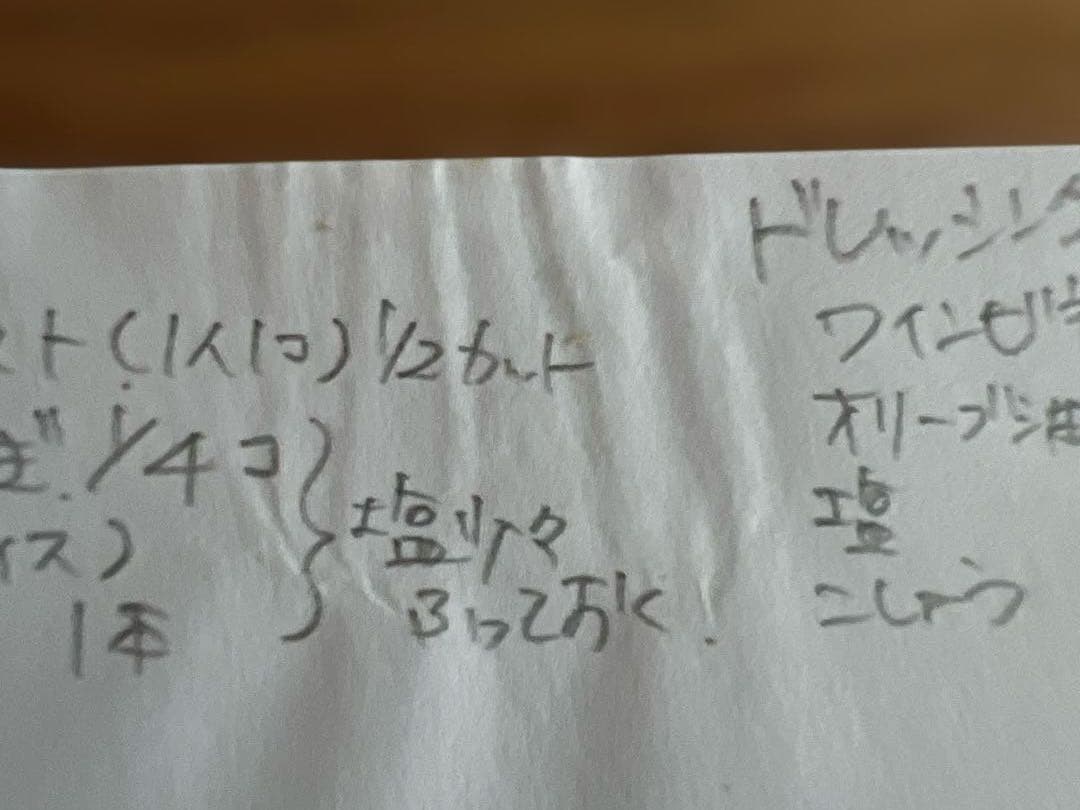 ト(1人1コ) 1/2カット
ぎ. 1/4コ
イス)
1本
塩少々
ふっておく.
ドレッシング
ワインビネ
オリーブ油
塩
こしょう